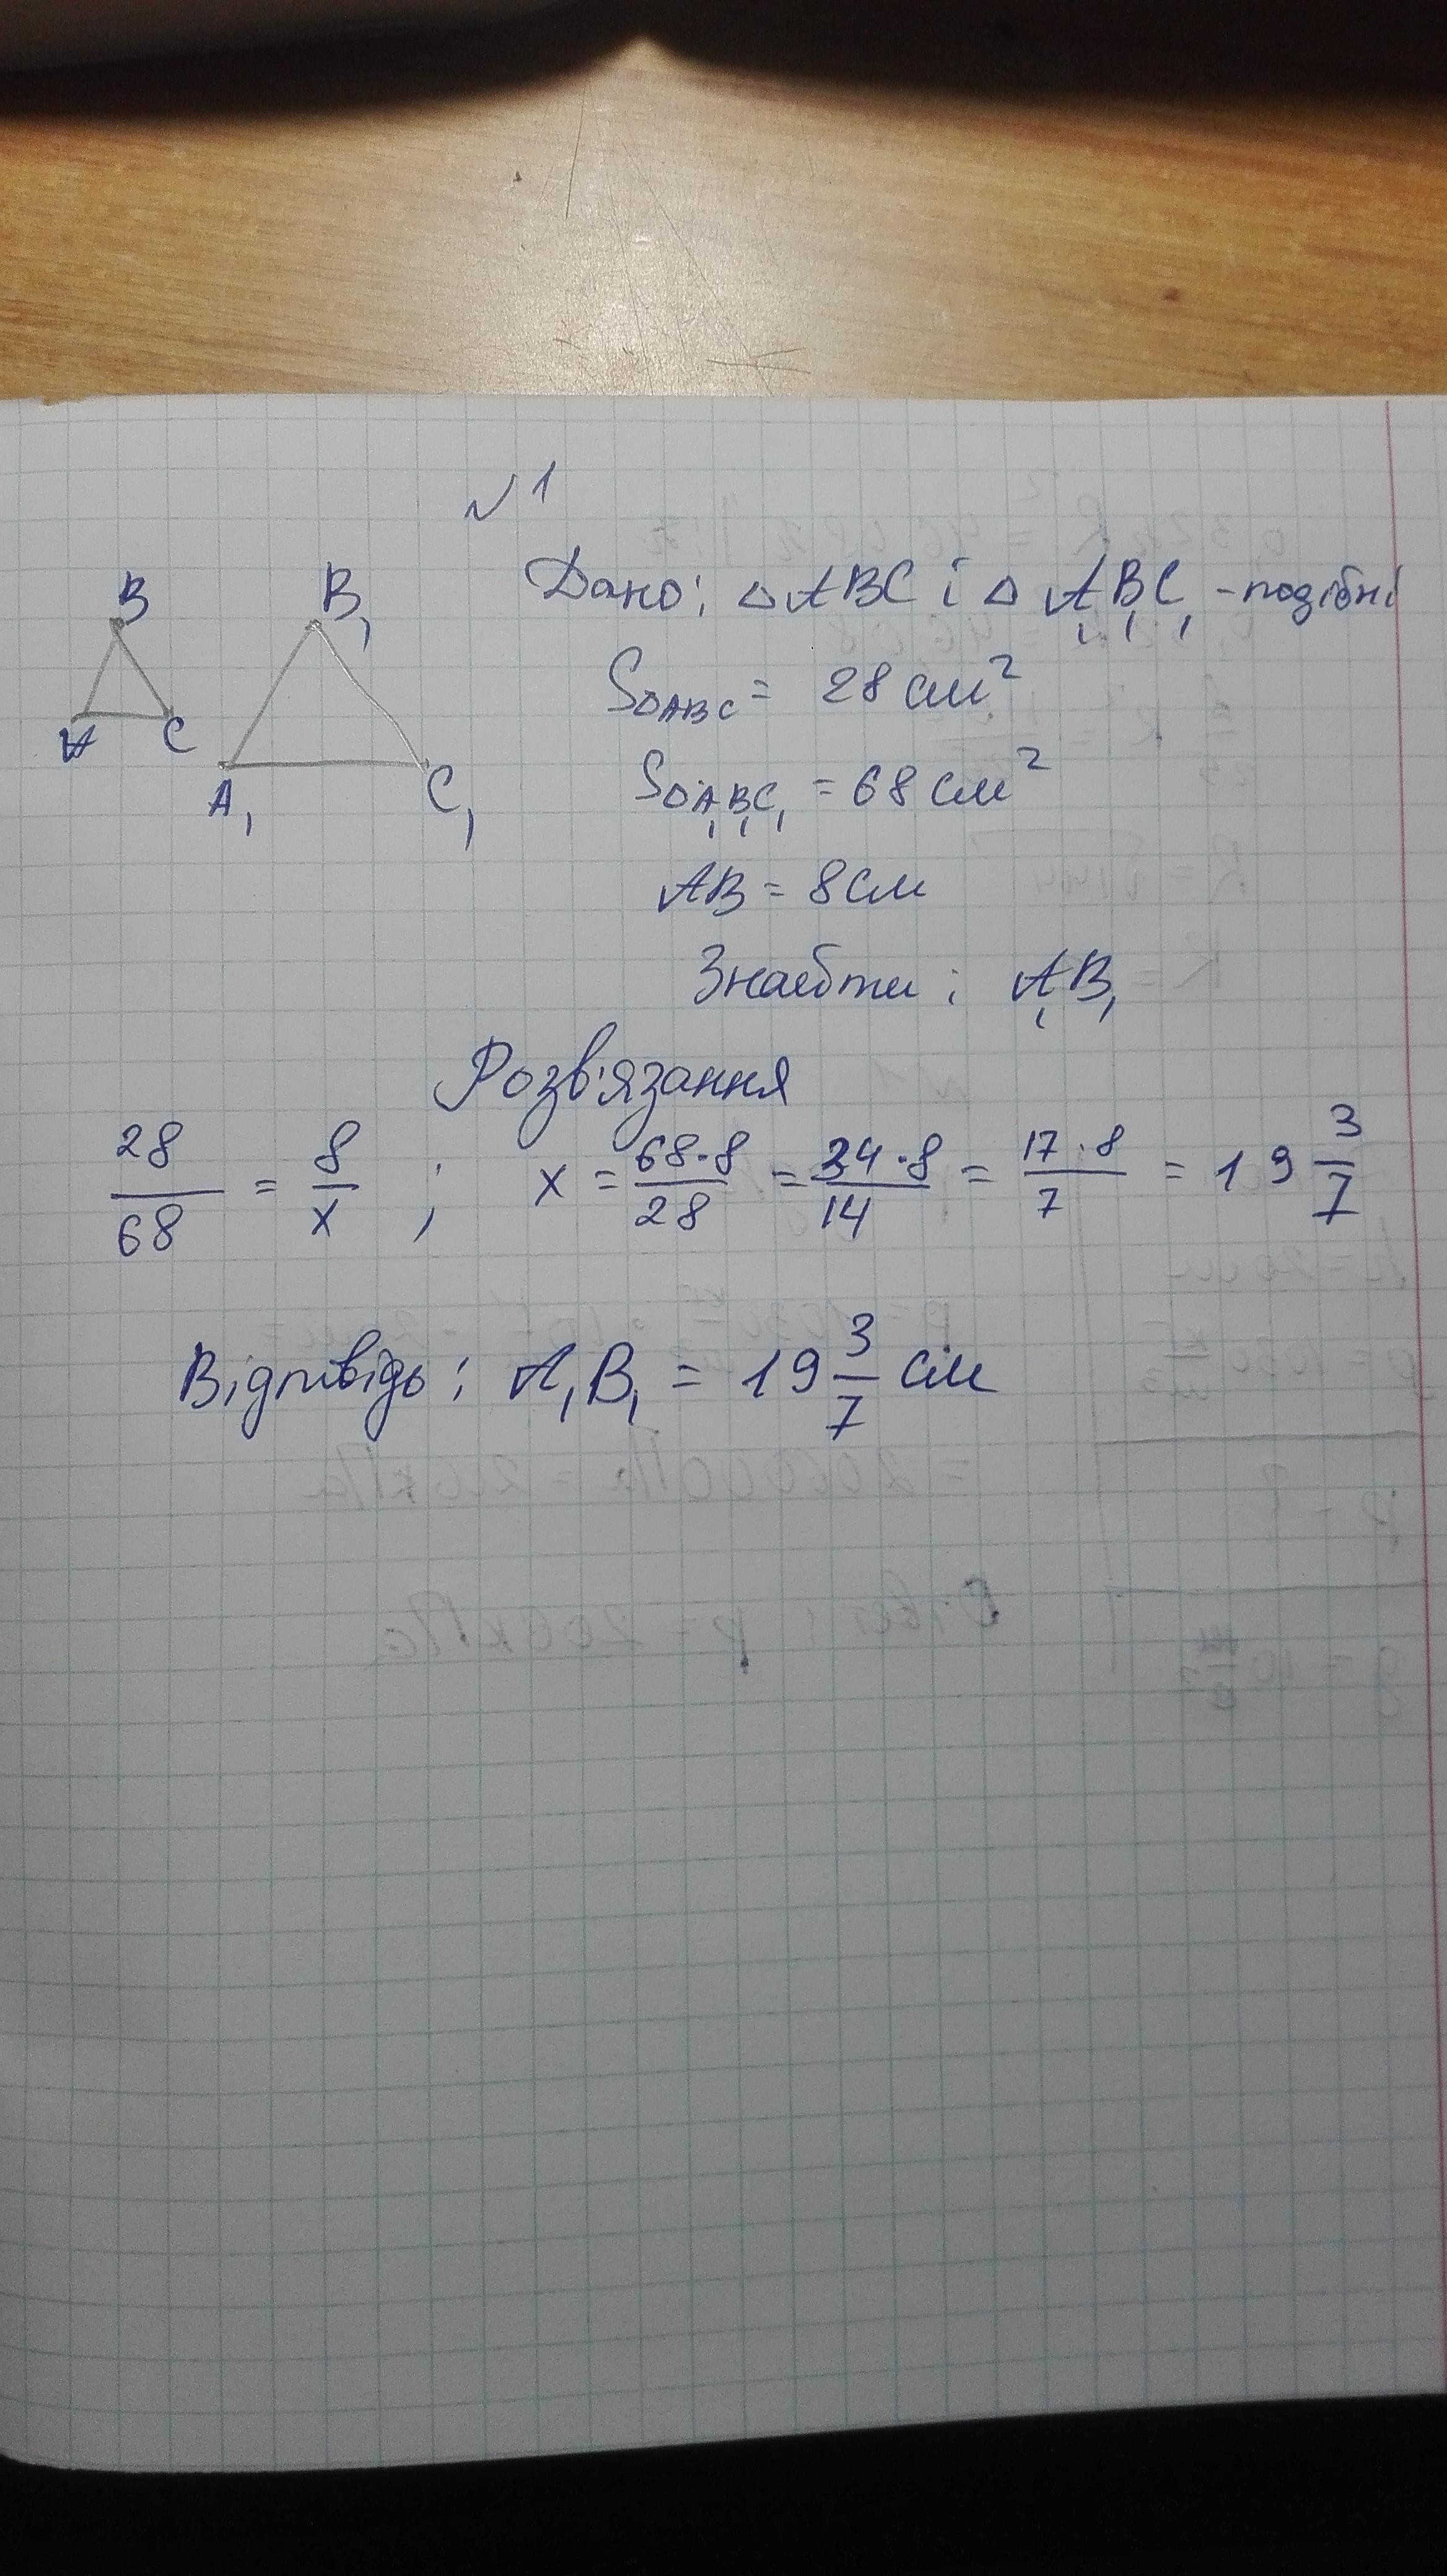 №1
B B₁
A C A₁ C₁
Дано: △ABC і △A₁B₁C₁ - подібні
S△ABC = 28 см²
S△A₁B₁C₁ = 68 см²
AB = 8 см
Знайти: A₁B₁
Розв'язання
28/68 = 8/x ; x = 68·8/28 = 34·8/14 = 17·8/7 = 19 3/7
Відповідь: A₁B₁ = 19 3/7 см